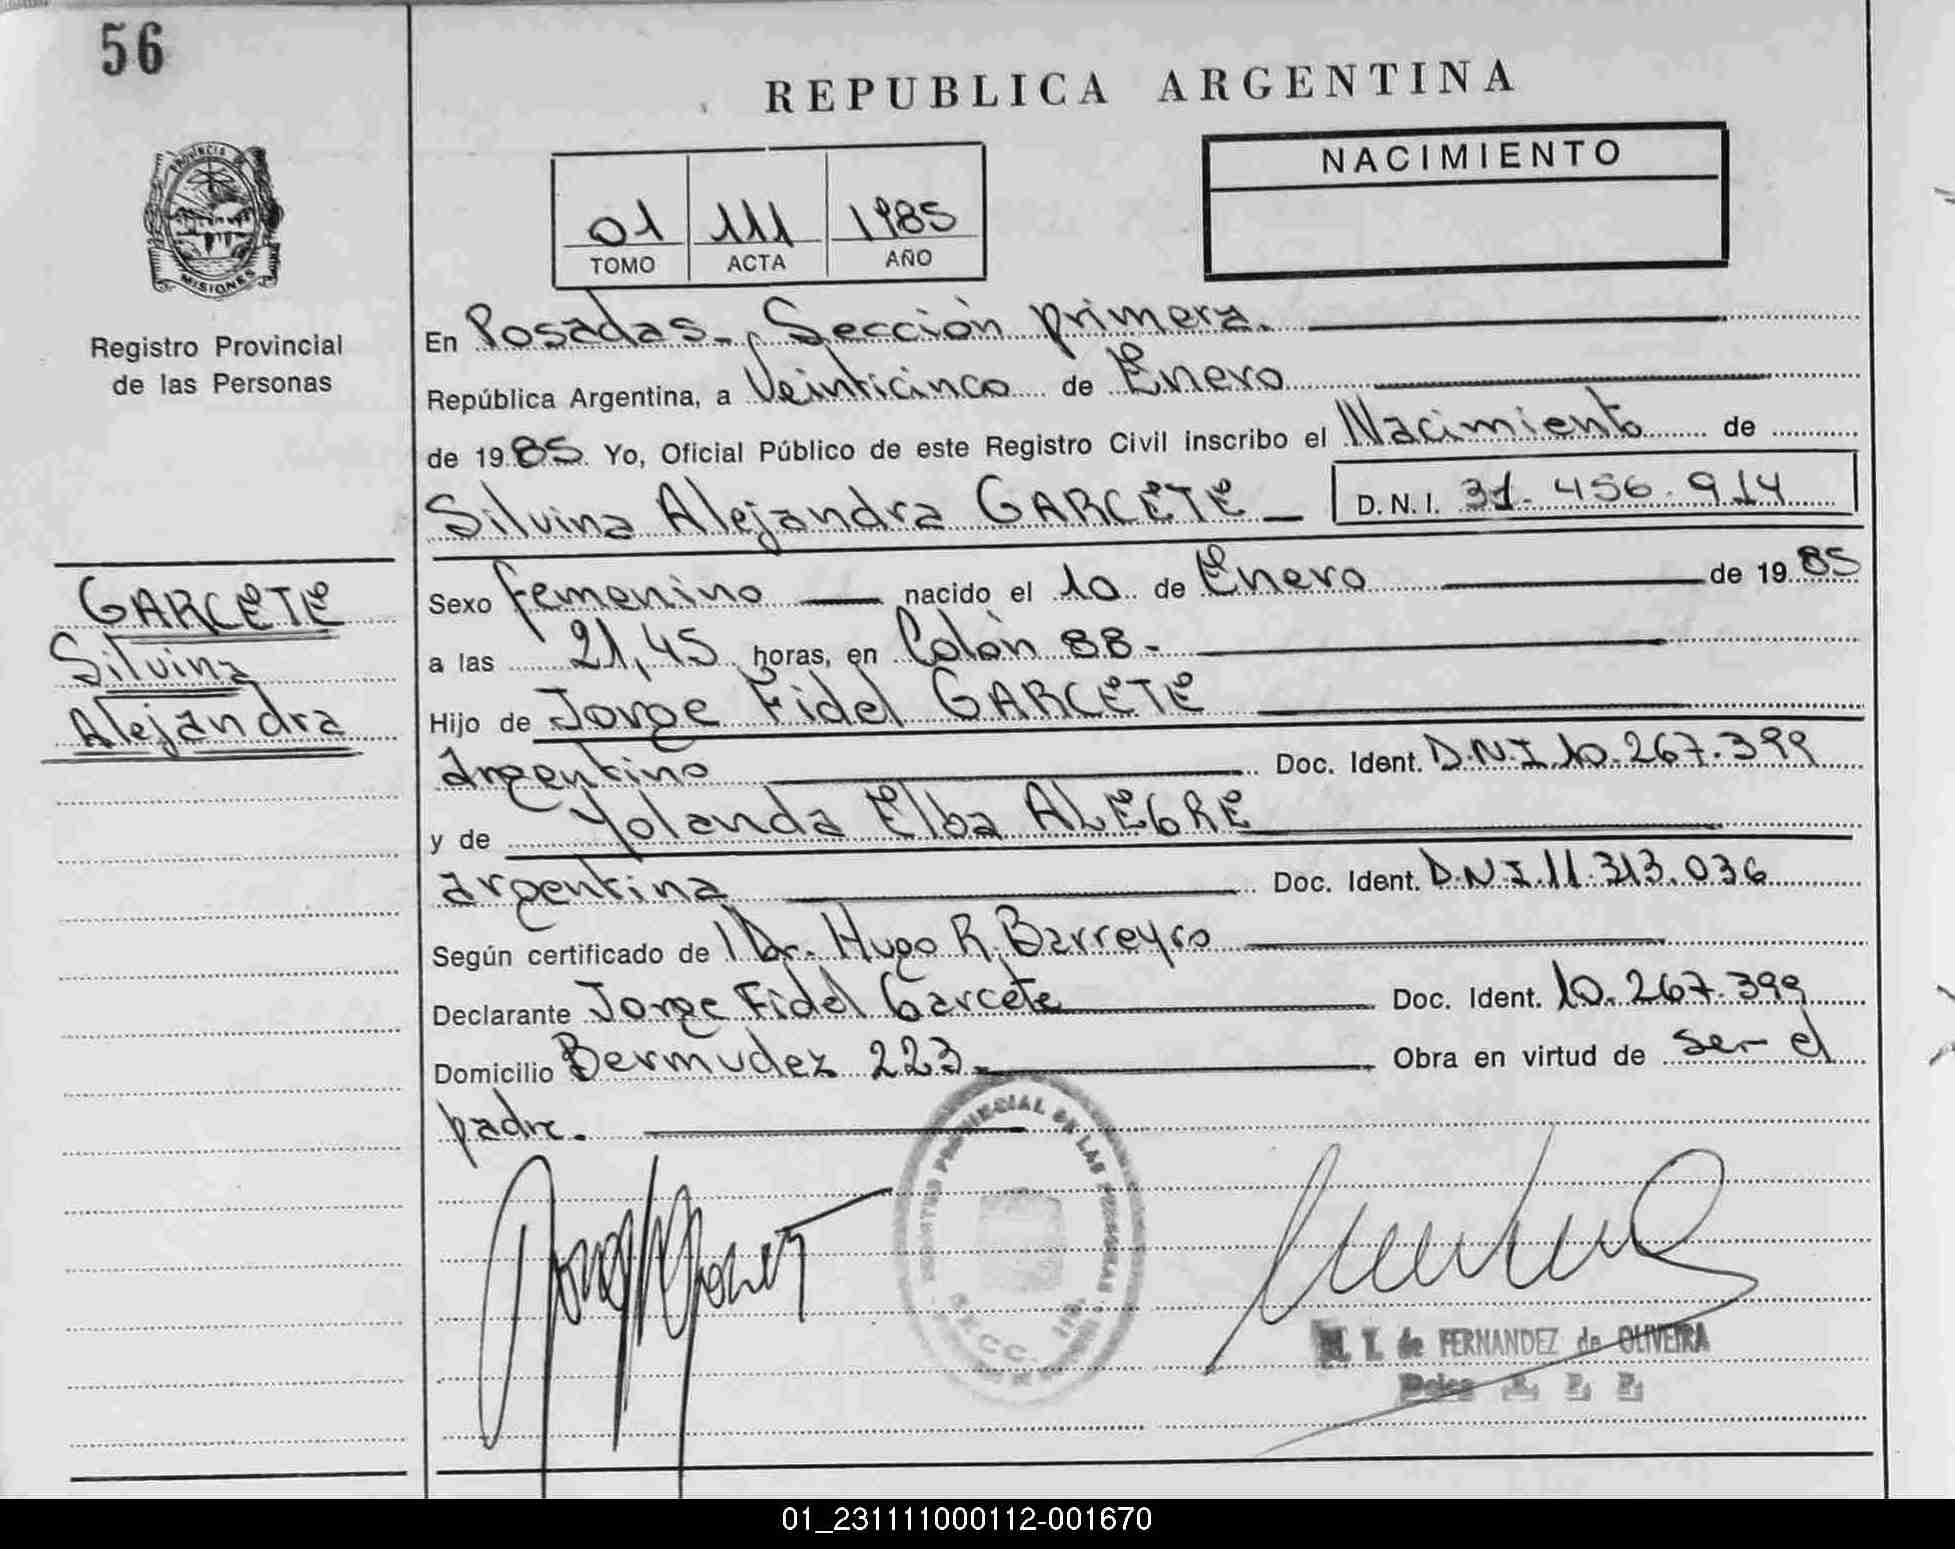 56
REPUBLICA ARGENTINA
PROVINCIA DE
MISIONES
Registro Provincial
de las Personas
01 111 1985
TOMO ACTA AÑO
NACIMIENTO
En Posadas - Sección primera.
República Argentina, a Veinticinco de Enero
de 1985 Yo, Oficial Público de este Registro Civil inscribo el Nacimiento de
Silvina Alejandra GARCETE - D.N.I. 31.456.914
GARCETE
Silvina
Alejandra
Sexo femenino nacido el 10 de Enero de 1985
a las 21,45 horas, en Colón 88 -
Hijo de Jorge Fidel GARCETE
argentino Doc. Ident. D.N.I. 10.267.399
y de Yolanda Elba ALEGRE
argentina Doc. Ident. D.N.I. 11.313.036
Según certificado de Dr. Hugo R. Barreyro
Declarante Jorge Fidel Garcete Doc. Ident. 10.267.399
Domicilio Bermudez 223 - Obra en virtud de ser el
padre.
PROVINCIAL DE LAS PERSONAS
SECC.
M. T. de FERNANDEZ de OLIVEIRA
01_231111000112-001670